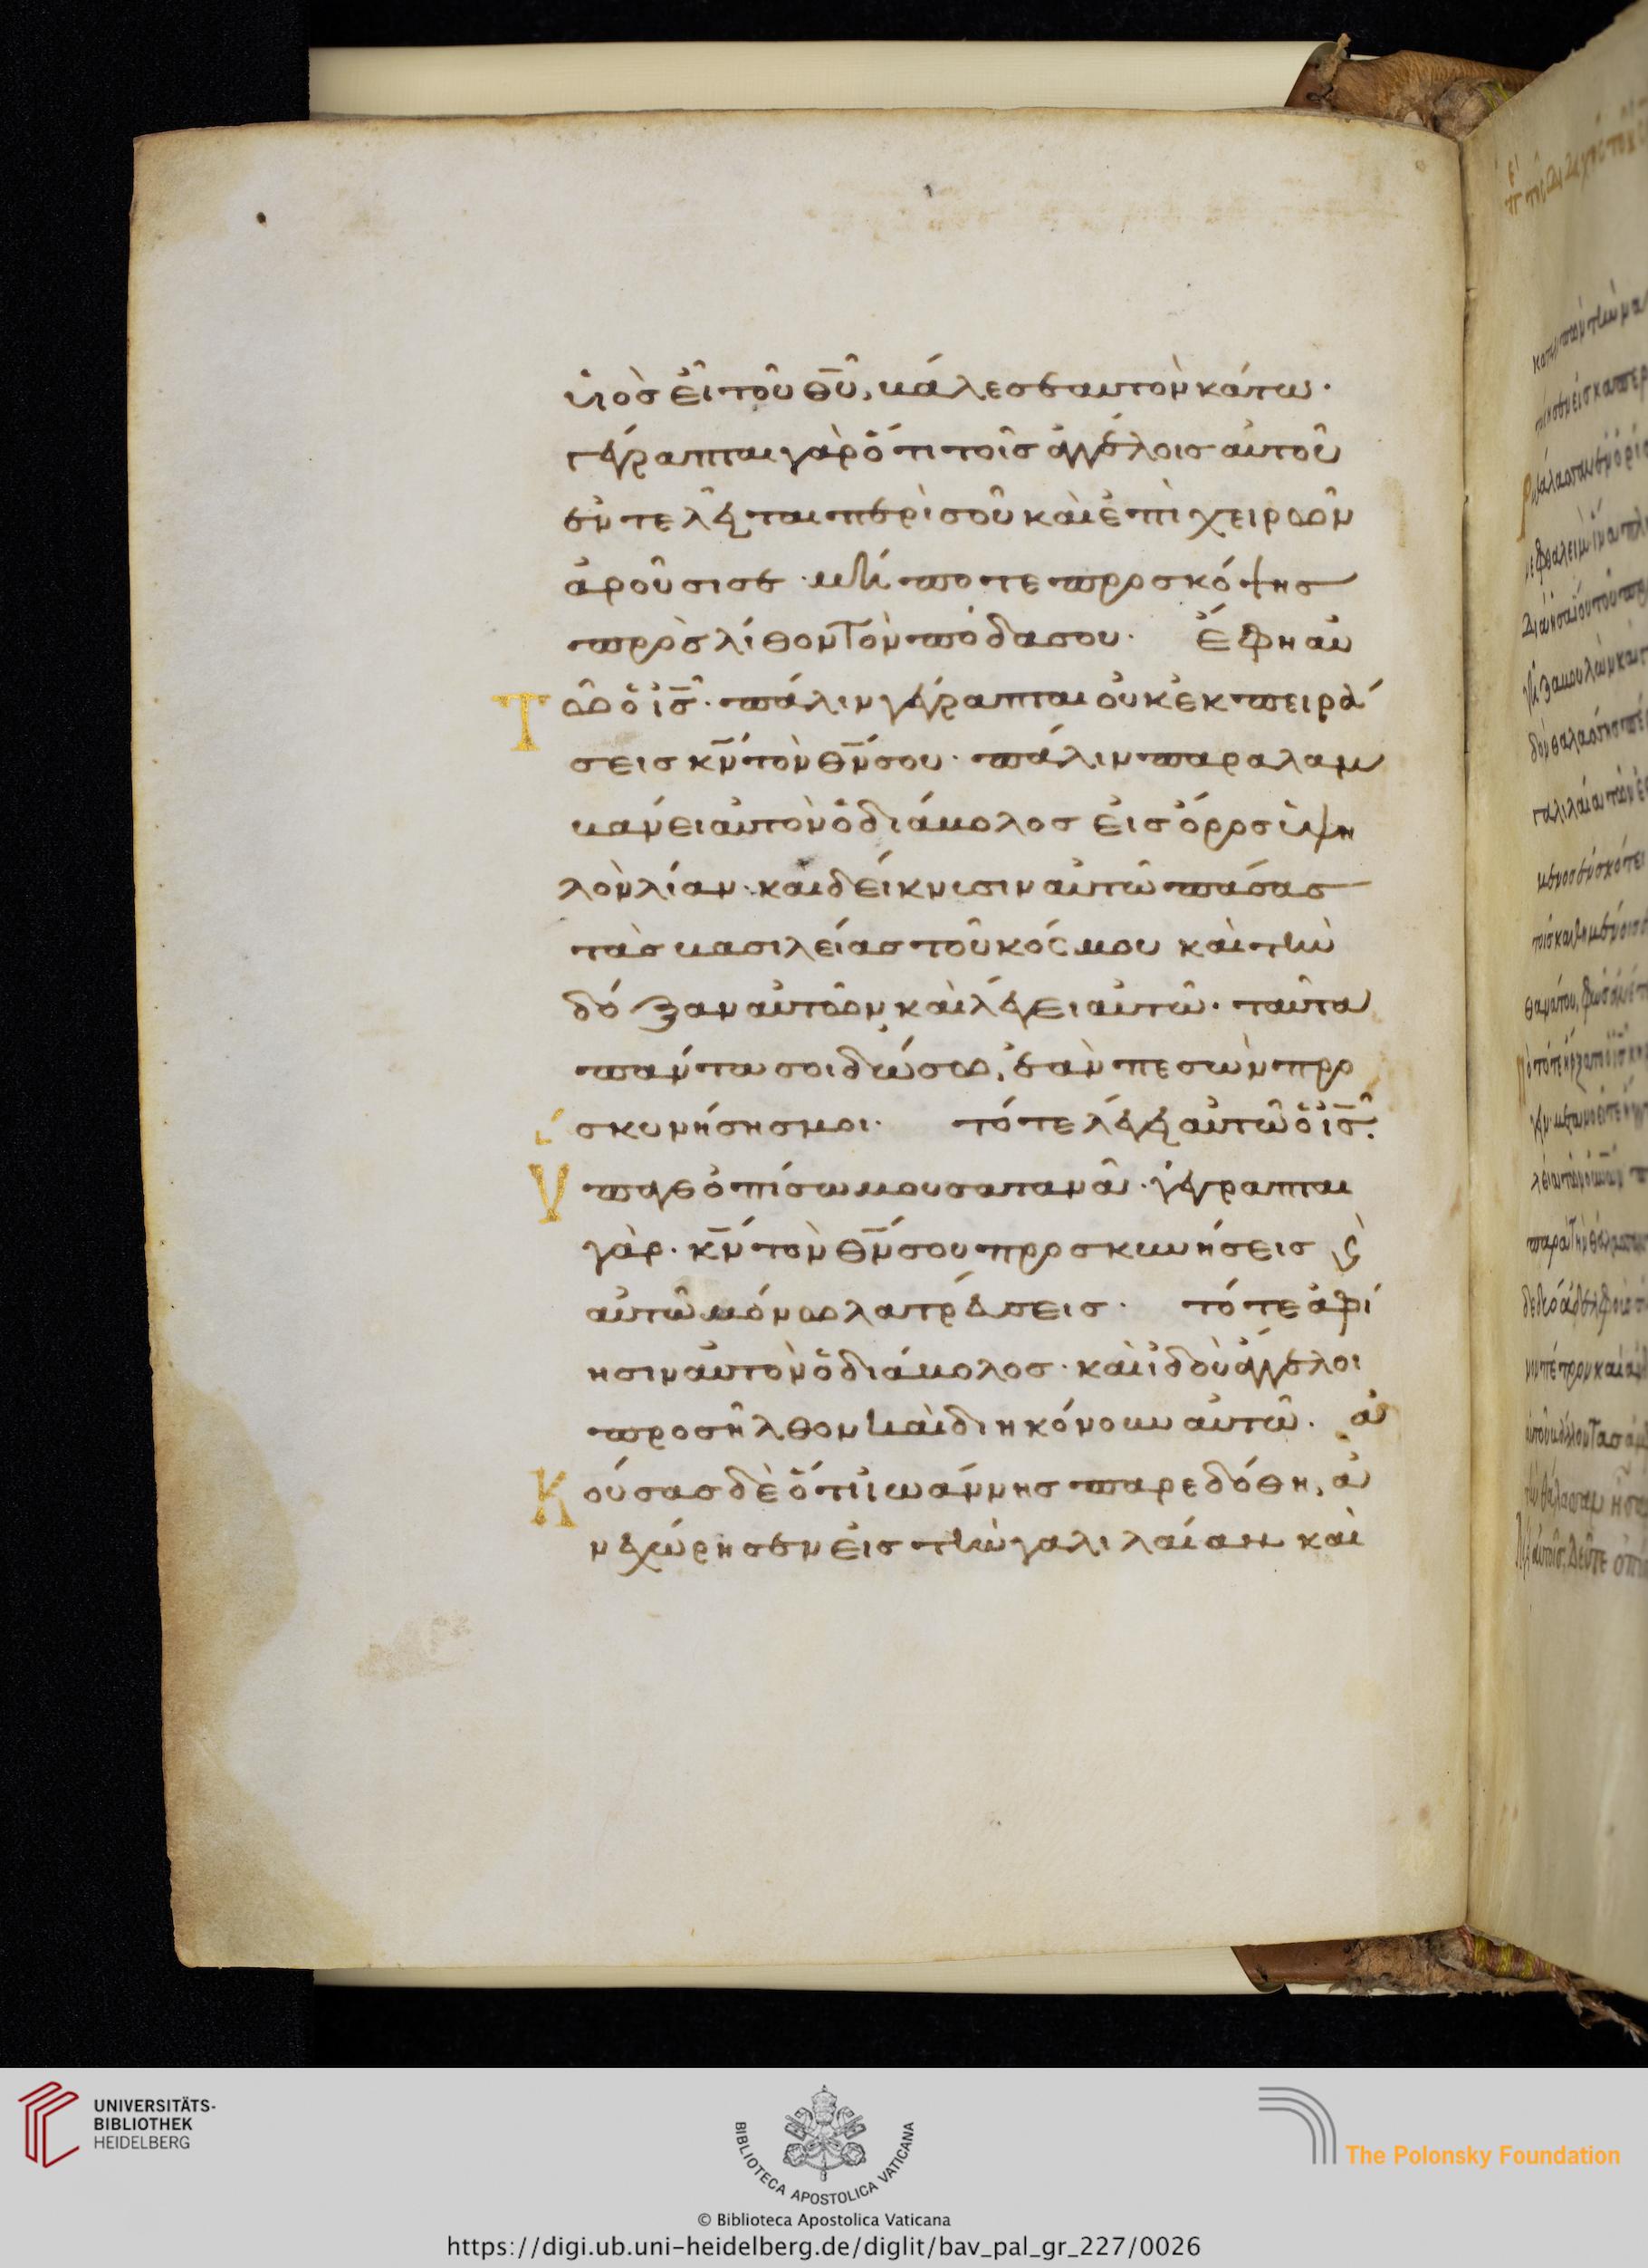 υἱὸς εἶ τοῦ θ̅υ̅, βάλε σεαυτὸν κάτω·
γέγραπται γὰρ ὅτι τοῖς ἀγγέλοις αὐτοῦ
ἐντελεῖται περὶ σοῦ καὶ ἐπὶ χειρῶν
ἀροῦσί σε· μήποτε προσκόψης
πρὸς λίθον τὸν πόδα σου· Ἔφη αυ
Τῶ ὁ ι̅ς̅· πάλιν γέγραπται οὐκ ἐκπειρά
σεις κ̅ν̅ τὸν θ̅ν̅ σου· πάλιν παραλαμ
βάνει αὐτὸν ὁ διάβολος εἰς ὄρος ὑψη
λὸν λίαν· καὶ δείκνυσιν αὐτῶ πάσας
τὰς βασιλείας τοῦ κόσμου καὶ τὴν
δόξαν αὐτῶν καὶ λέγει αὐτῶ· ταῦτα
πάντα σοι δώσω, ἐὰν πεσὼν προ
σκυνήσης μοι· τότε λέγει αὐτῶ ὁ ι̅ς̅·
Υπαγε ὀπίσω μου σατανᾶ· γέγραπται
γὰρ· κ̅ν̅ τὸν θ̅ν̅ σου προσκυνήσεις ϗ
αὐτῶ μόνω λατρεύσεις· τότε ἀφί
ησιν αὐτὸν ὁ διάβολος· καὶ ἰδοὺ ἄγγελοι
προσῆλθον καὶ διηκόνουν αὐτῶ. ἀ
Κούσας δὲ ὅτι ἰωάννης παρεδόθη, ἀ
νεχώρησεν εἰς τὴν γαλιλαίαν καὶ
UNIVERSITÄTS-
BIBLIOTHEK
HEIDELBERG
BIBLIOTECA APOSTOLICA VATICANA
The Polonsky Foundation
© Biblioteca Apostolica Vaticana
https://digi.ub.uni-heidelberg.de/diglit/bav_pal_gr_227/0026